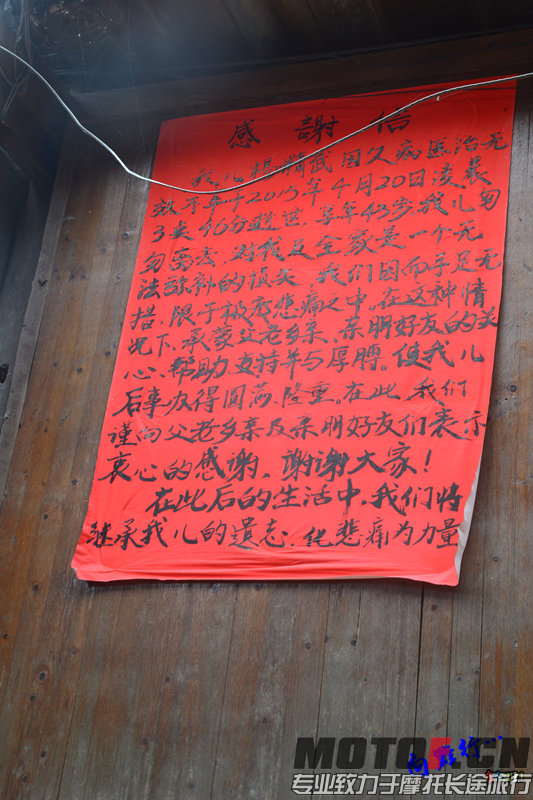 感謝信
我儿杨精武因久病医治无
效不幸于2015年4月20日凌晨
3点46分逝世，享年43岁。我儿匆
匆离去，对我及全家是一个无
法弥补的损失，我们因而手足无
措，限于极度悲痛之中。在这种情
况下、承蒙父老乡亲、亲朋好友的关
心、帮助、支持并与厚膊，使我儿
后事办得圆满、隆重。在此，我们
谨向父老乡亲及亲朋好友们表示
衷心的感谢，谢谢大家！
在此后的生活中，我们将
继承我儿的遗志、化悲痛为力量
MOTO8.CN
专业致力于摩托长途旅行